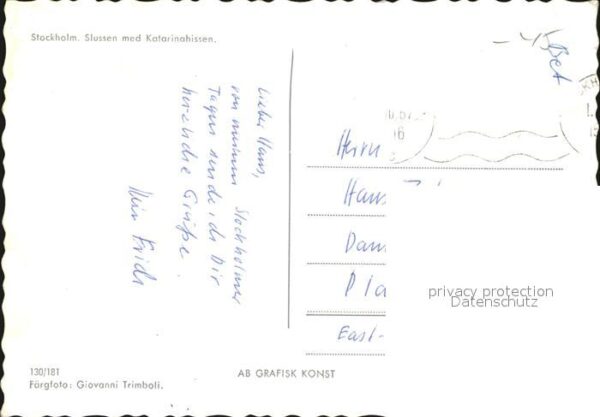 Stockholm. Slussen med Katarinahissen.
Lieber Hans,
von meinem Stockholmer
Tagen sende ich Dir
herzliche Grüße.
Dein
Bet
16
Herrn
Hans
Dam
Pla
East-
privacy protection
Datenschutz
130/181
Färgfoto: Giovanni Trimboli.
AB GRAFISK KONST